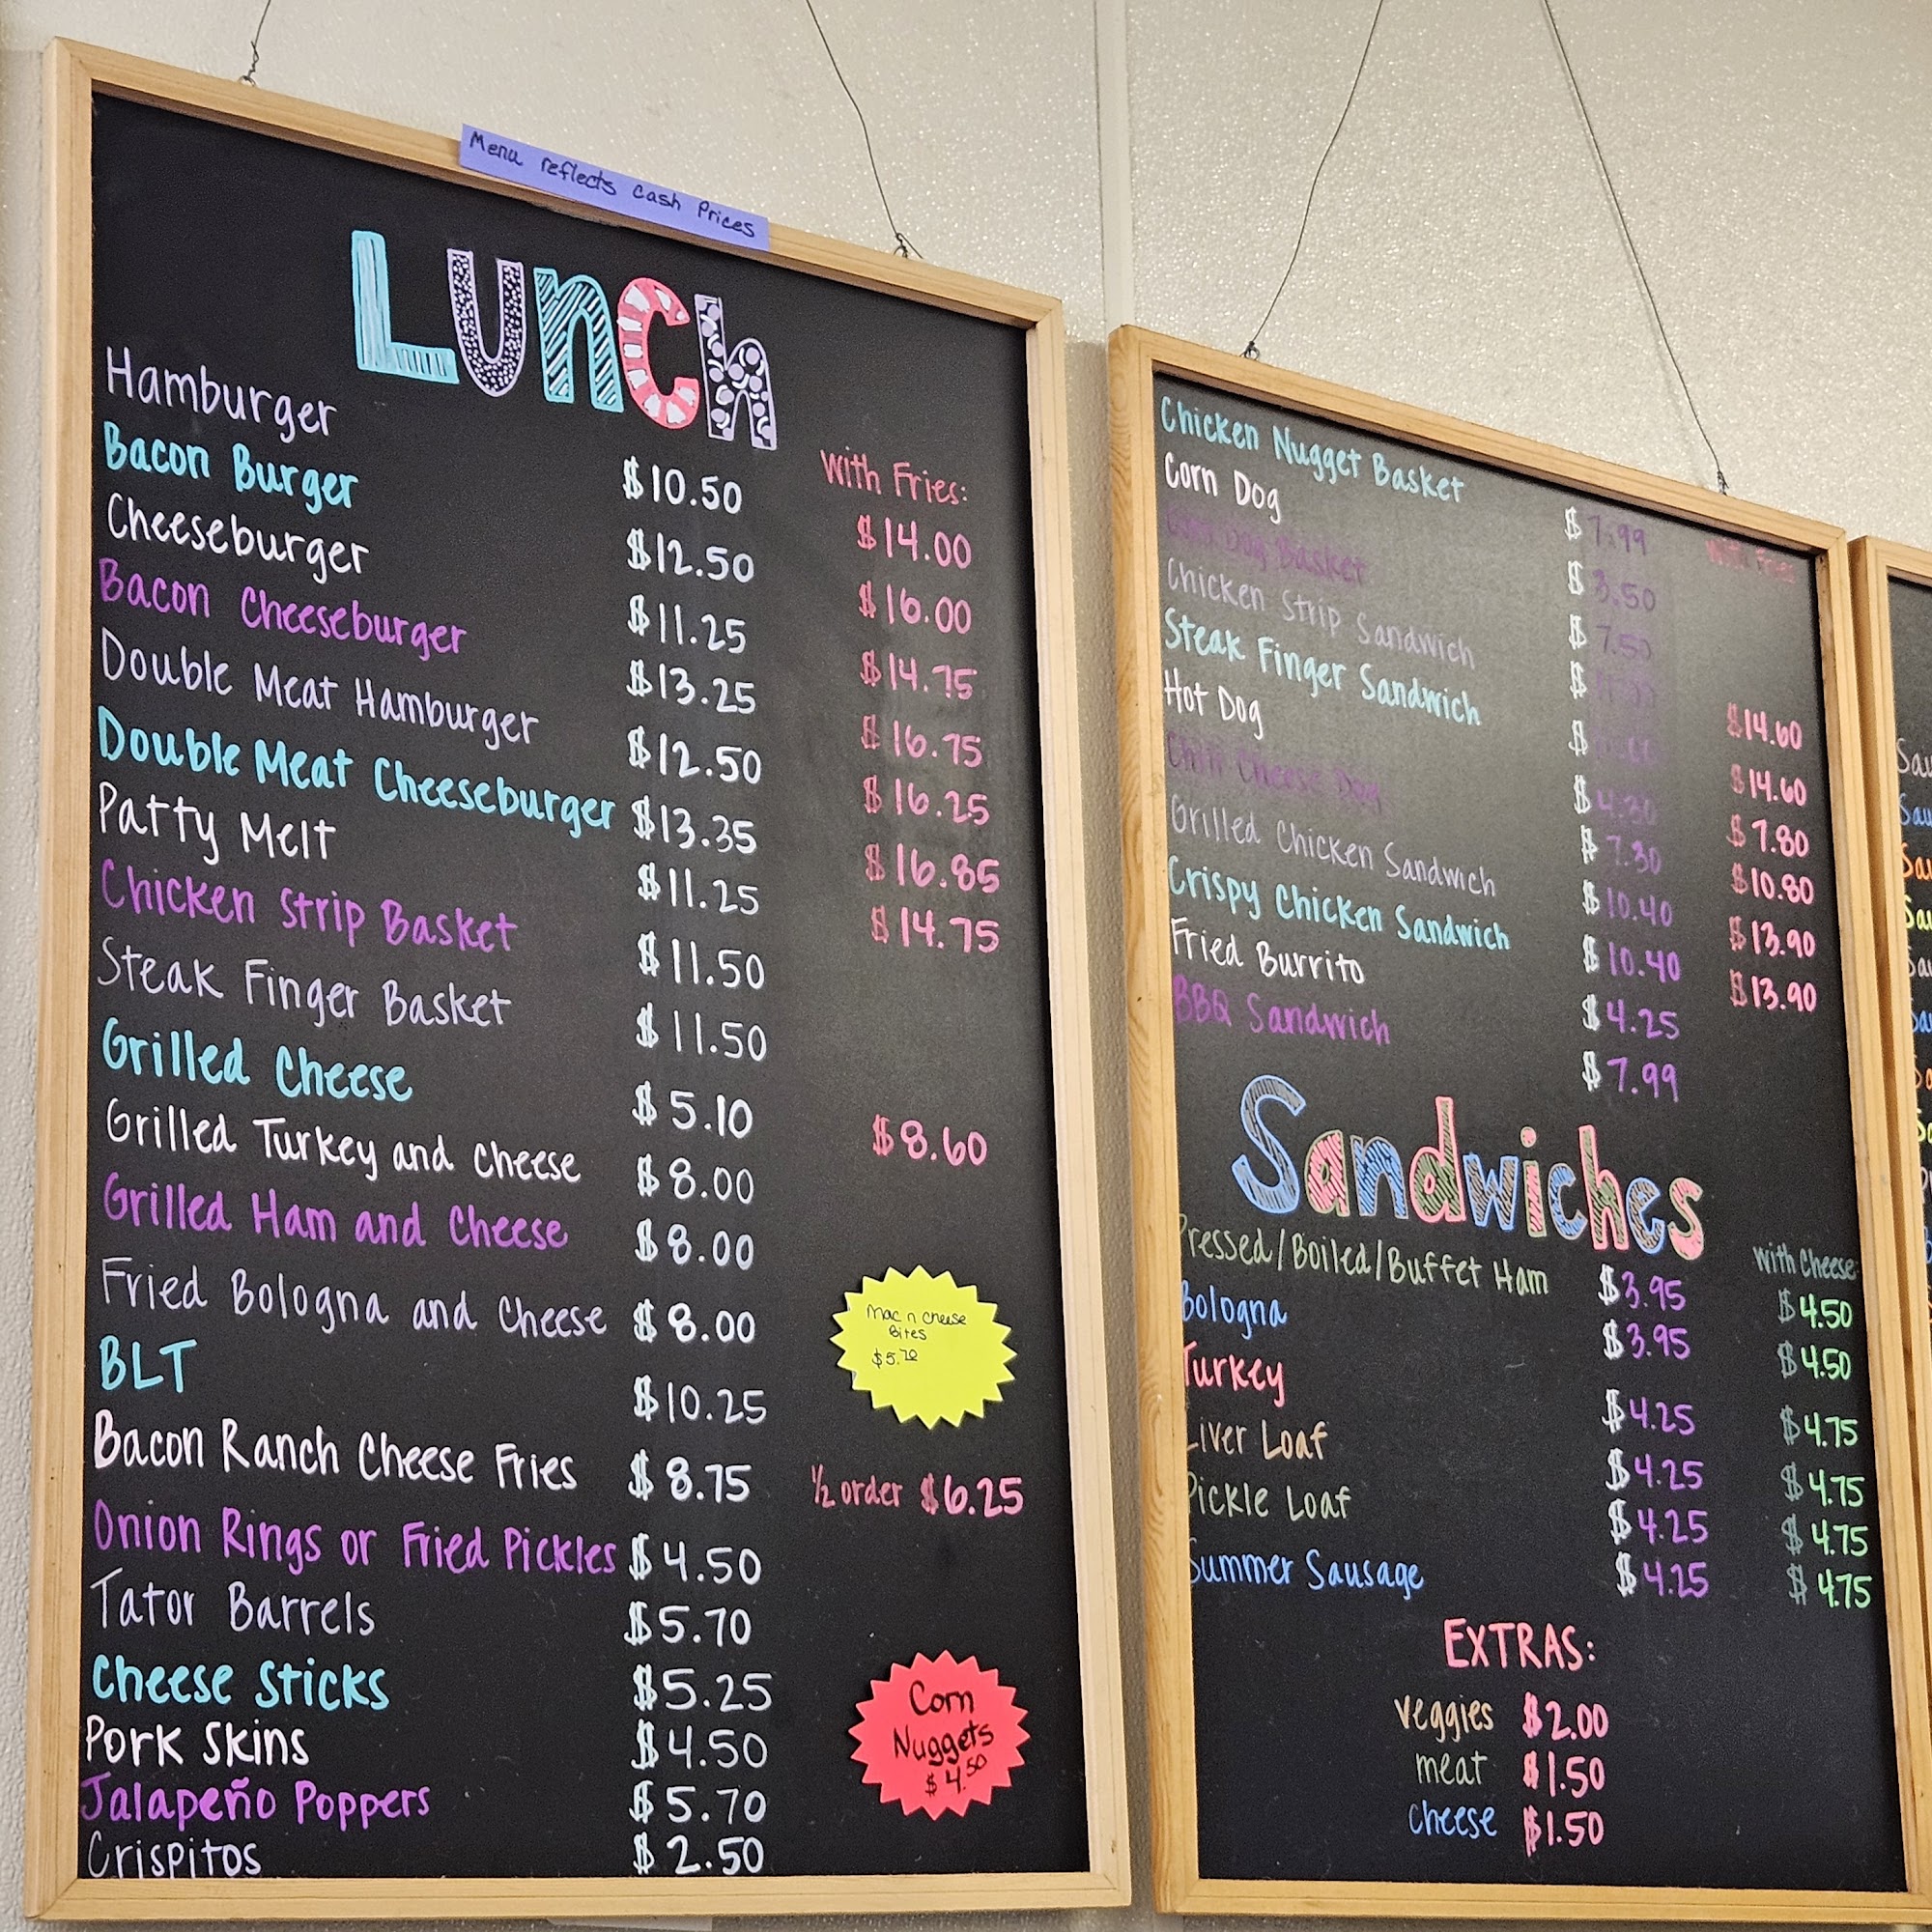 Menu reflects cash Prices
Lunch
With Fries:
Hamburger $10.50 $14.00
Bacon Burger $12.50 $16.00
Cheeseburger $11.25 $14.75
Bacon Cheeseburger $13.25 $16.75
Double Meat Hamburger $12.50 $16.25
Double Meat Cheeseburger $13.35 $16.85
Patty Melt $11.25 $14.75
Chicken Strip Basket $11.50
Steak Finger Basket $11.50
Grilled Cheese $5.10 $8.60
Grilled Turkey and Cheese $8.00
Grilled Ham and Cheese $8.00
Fried Bologna and Cheese $8.00
BLT $10.25
Bacon Ranch Cheese Fries $8.75 ½ order $6.25
Onion Rings or Fried Pickles $4.50
Tator Barrels $5.70
Cheese Sticks $5.25
Pork Skins $4.50
Jalapeño Poppers $5.70
Crispitos $2.50
Mac n Cheese
Bites
$5.70
Corn
Nuggets
$4.50
With Fries
Chicken Nugget Basket $7.99
Corn Dog $3.50
Corn Dog Basket $7.50
Chicken Strip Sandwich $ $14.60
Steak Finger Sandwich $ $14.60
Hot Dog $4.30 $7.80
Chili Cheese Dog $7.30 $10.80
Grilled Chicken Sandwich $10.40 $13.90
Crispy Chicken Sandwich $10.40 $13.90
Fried Burrito $4.25
BBQ Sandwich $7.99
Sandwiches
With Cheese:
Pressed/Boiled/Buffet Ham $3.95 $4.50
Bologna $3.95 $4.50
Turkey $4.25 $4.75
Liver Loaf $4.25 $4.75
Pickle Loaf $4.25 $4.75
Summer Sausage $4.25 $4.75
EXTRAS:
veggies $2.00
meat $1.50
cheese $1.50